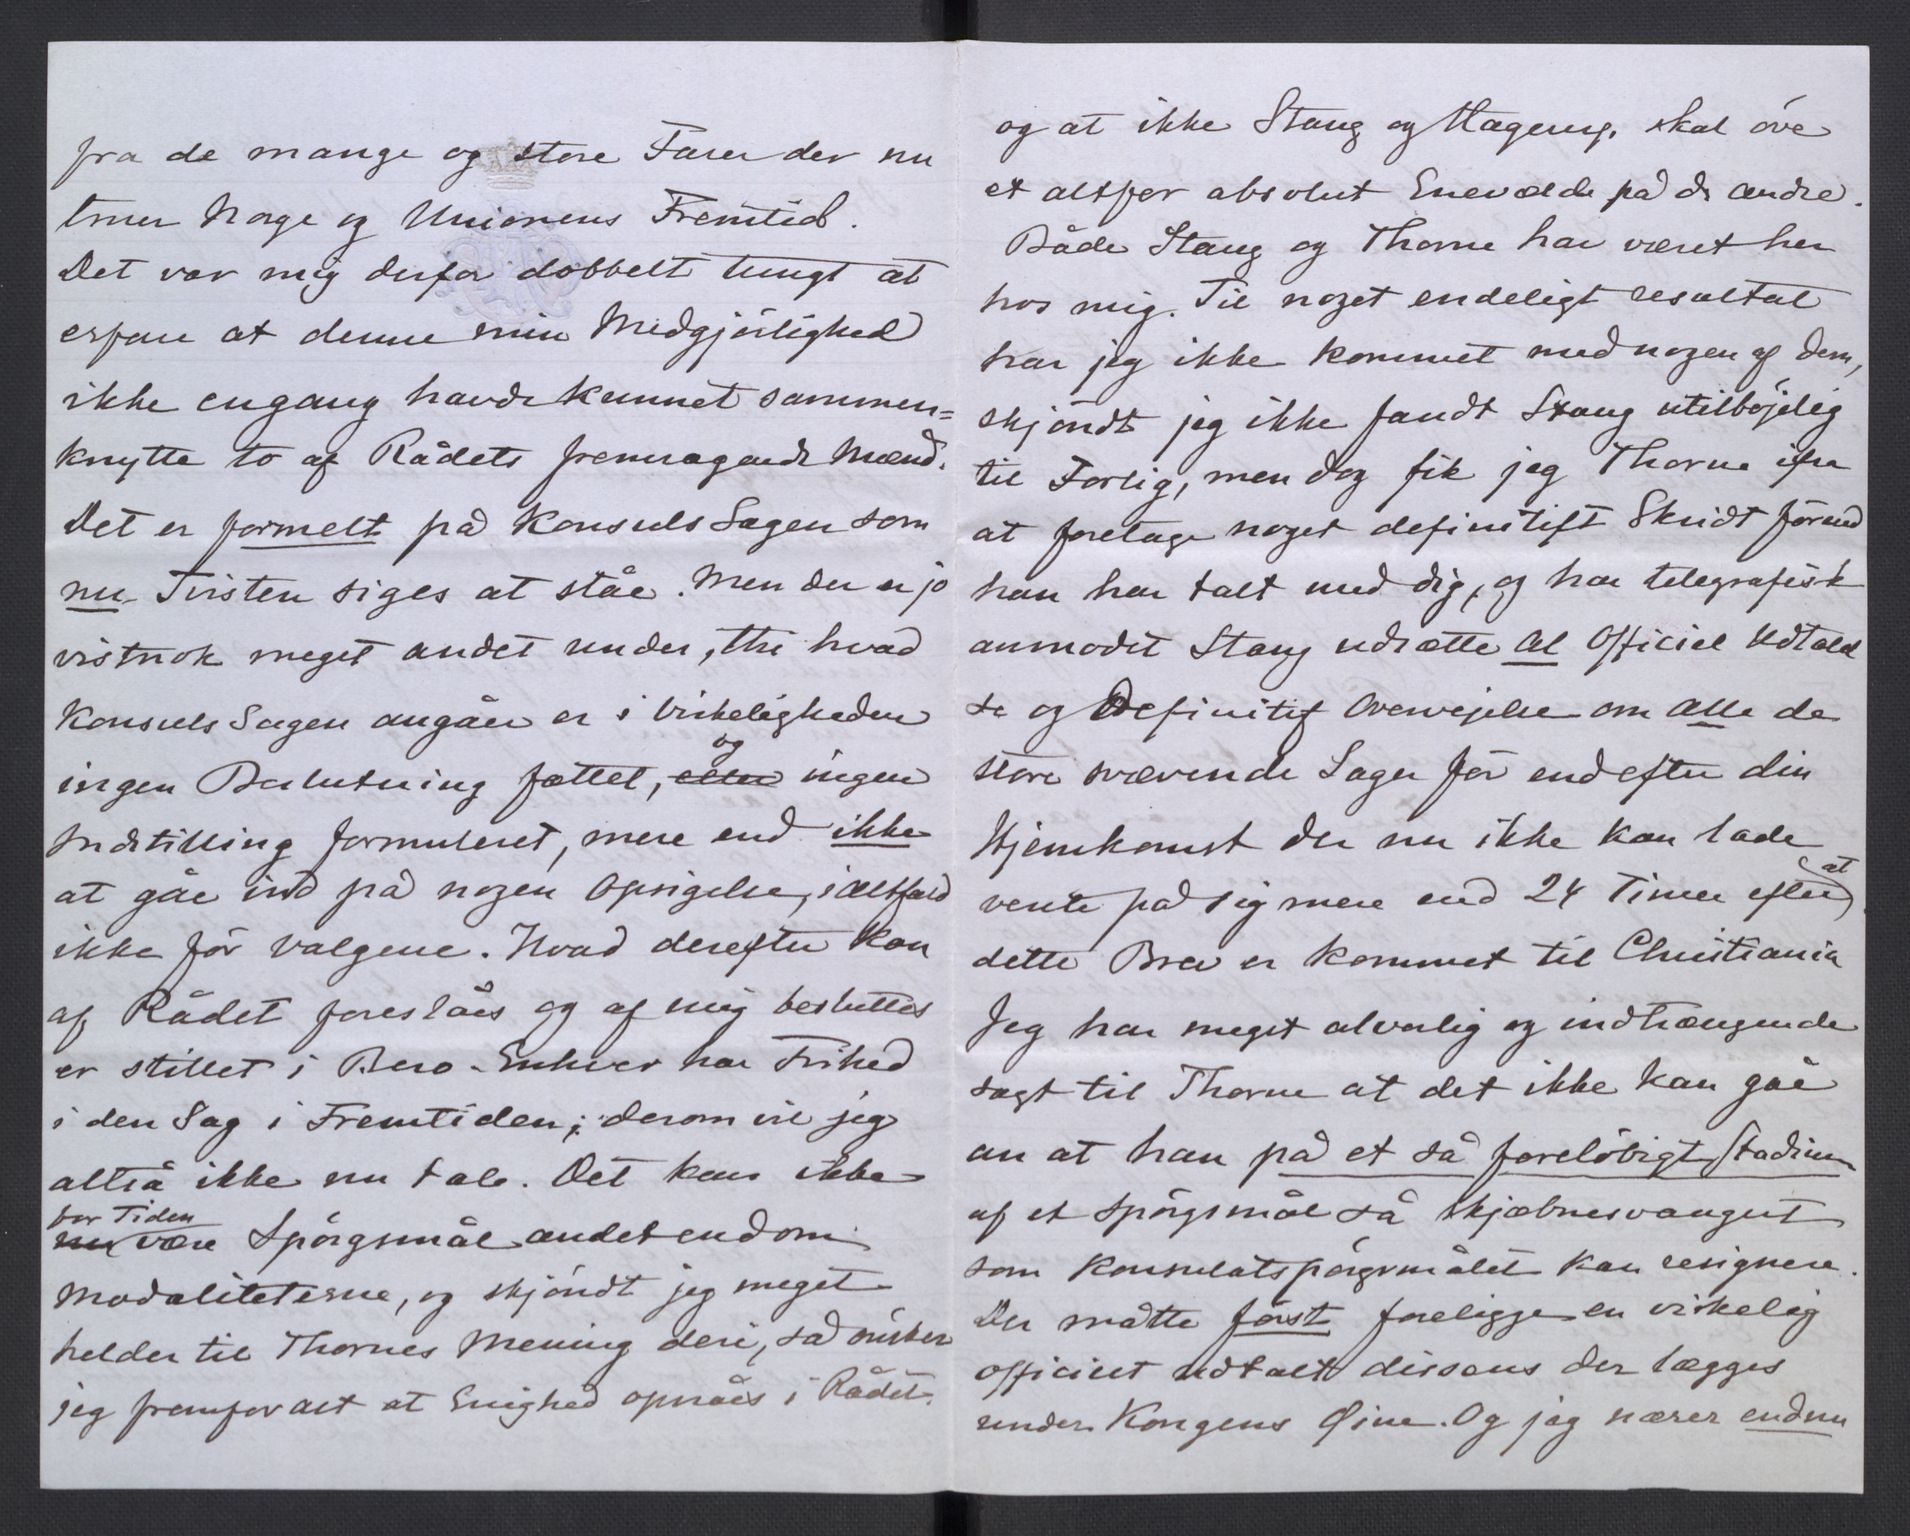 fra de mange og store Farer der nu
truer Norge og Unionens Fremtid.
Det var mig derfor dobbelt tungt at
erfare at denne min Medgjörlighed
ikke engang havde kunnet sammen=
knytte to af Rådets fremragende Mænd.
Det er formelt på Konsuls Sagen som
nu Tvisten siges at ståe. Men der er jo
vistnok meget andet under, thi hvad
Konsuls Sagen angåer er i Virkeligheden
ingen Beslutning fattet, og ingen
Indstilling formuleret, mere end ikke
at gåe ind på nogen Opsigelse, ialtfald
ikke för Valgene. Hvad derefter kan
af Rådet foreslåes og af mig besluttes
er stillet i Bero. Enhver har Frihed
i den Sag i Fremtiden; derom vil jeg
altså ikke nu tale. Det kan ikke
for Tiden
nu være Spörgsmål andet end om
Modaliteterne, og skjöndt jeg meget
helder til Thornes Mening deri, så önsker
jeg fremfor alt at Enighed opnåes i Rådet.
og at ikke Stang og Hagerup. skal öve
et altfor absolut Enevælde på de andre.
Både Stang og Thorne har været her
hos mig. Til noget endeligt resultat
har jeg ikke kommet med nogen af dem,
skjöndt jeg ikke fandt Stang utilböjelig
til Forlig, men dog fik jeg Thorne ifra
at foretage noget definitift Skridt förend
han har talt med dig, og har telegrafisk
anmodet Stang udsætte al Officiel Udtalel
se og Definitif Overvejelse om alle de
store svævende Sager för end efter din
Hjemkomst der nu ikke kan lade
vente på sig mere end 24 Timer efter at
dette Brev er kommet til Christiania
Jeg har meget alvorlig og indtrængende
sagt til Thorne at det ikke kan gåe
an at han på et så forelöbigt Stadium
af et Spörgsmål så skjæbnesvangert
som Konsulatspörgsmålet kan resignere.
Der måtte först foreligge en virkelig
officielt udtalt dissens der lægges
under Kongens Øine. Og jeg nærer endnu